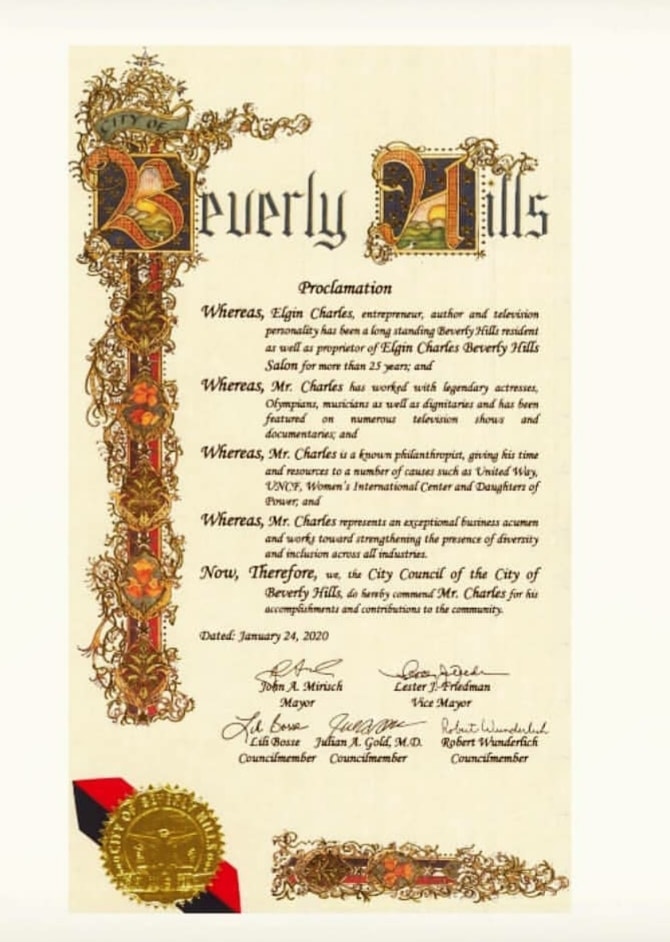 CITY OF
Beverly Hills
Proclamation
Whereas, Elgin Charles, entrepreneur, author and television
personality has been a long standing Beverly Hills resident
as well as proprietor of Elgin Charles Beverly Hills
Salon for more than 25 years; and
Whereas, Mr. Charles has worked with legendary actresses,
Olympians, musicians as well as dignitaries and has been
featured on numerous television shows and
documentaries; and
Whereas, Mr. Charles is a known philanthropist, giving his time
and resources to a number of causes such as United Way,
UNCF, Women's International Center and Daughters of
Power; and
Whereas, Mr. Charles represents an exceptional business acumen
and works toward strengthening the presence of diversity
and inclusion across all industries.
Now, Therefore, we, the City Council of the City of
Beverly Hills, do hereby commend Mr. Charles for his
accomplishments and contributions to the community.
Dated: January 24, 2020
John A. Mirisch Lester J. Friedman
Mayor Vice Mayor
Lili Bosse Robert Wunderlich
Lili Bosse Julian A. Gold, M.D. Robert Wunderlich
Councilmember Councilmember Councilmember
CITY OF BEVERLY HILLS